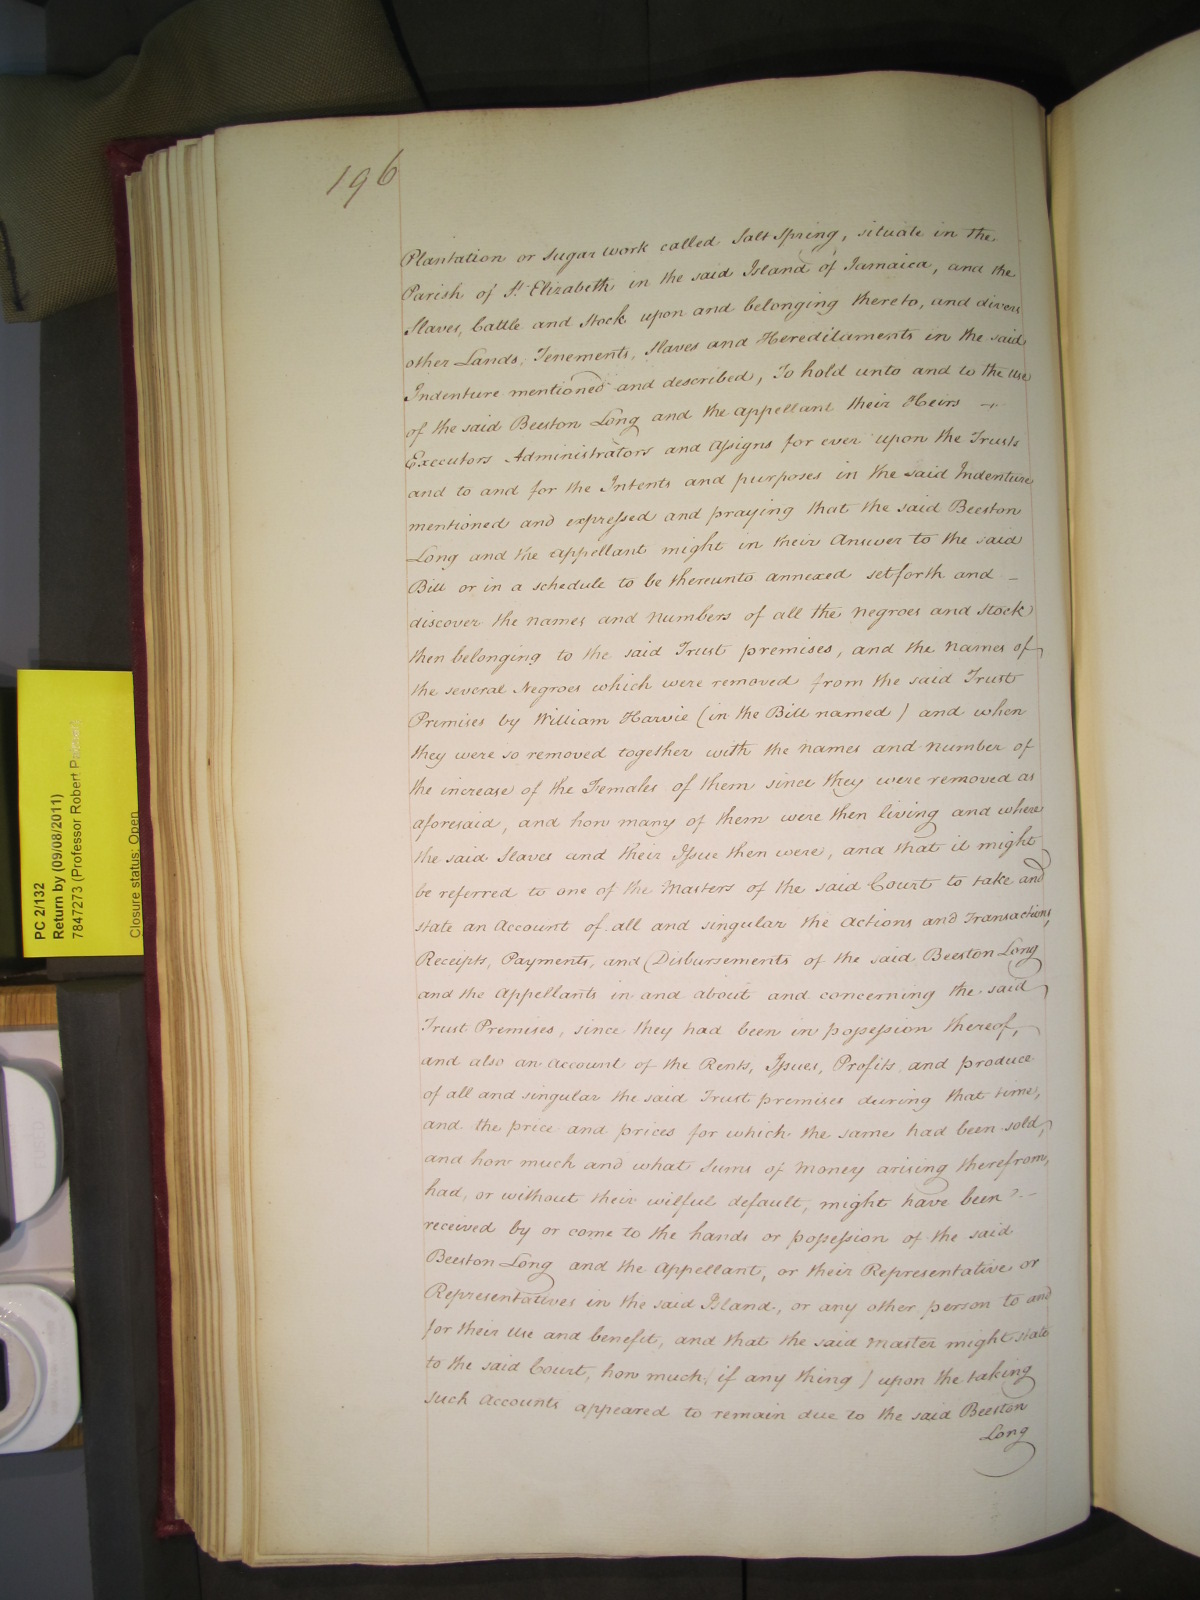 196
Plantation or Sugar work called Salt Spring, situate in the
Parish of St. Elizabeth in the said Island of Jamaica, and the
Slaves, Cattle and Stock upon and belonging thereto, and divers
other Lands, Tenements, Slaves and Hereditaments in the said
Indenture mentioned and described, To hold unto and to the Use
of the said Beeston Long and the Appellant their Heirs —
Executors Administrators and Assigns for ever upon the Trusts
and to and for the Intents and purposes in the said Indenture
mentioned and expressed and praying that the said Beeston
Long and the Appellant might in their Answer to the said
Bill or in a schedule to be thereunto annexed setforth and –
discover the names and Numbers of all the Negroes and Stock
then belonging to the said Trust premises, and the Names of
the several Negroes which were removed from the said Trust
Premises by William Harvie (in the Bill named) and when
they were so removed together with the Names and Number of
the increase of the Females of them since they were removed as
aforesaid, and how many of them were then living and where
the said Slaves and their Issue then were, and that it might
be referred to one of the Masters of the said Court to take and
state an Account of all and singular the Actions and Transactions,
Receipts, Payments, and Disbursements of the said Beeston Long
and the Appellants in and about and concerning the said
Trust Premises, since they had been in possession thereof,
and also an Account of the Rents, Issues, Profits and produce
of all and singular the said Trust premises during that time,
and the price and prices for which the same had been sold,
and how much and what Sums of Money arising therefrom,
had, or without their wilful default, might have been –
received by or come to the hands or possession of the said
Beeston Long and the Appellant, or their Representative or
Representatives in the said Island, or any other person to and
for their Use and benefit, and that the said Master might state
to the said Court, how much, if any thing) upon the taking
such Accounts appeared to remain due to the said Beeston
Long
PC 2/132
Return by (09/08/2011)
7847273 (Professor Robert
Closure status: Open